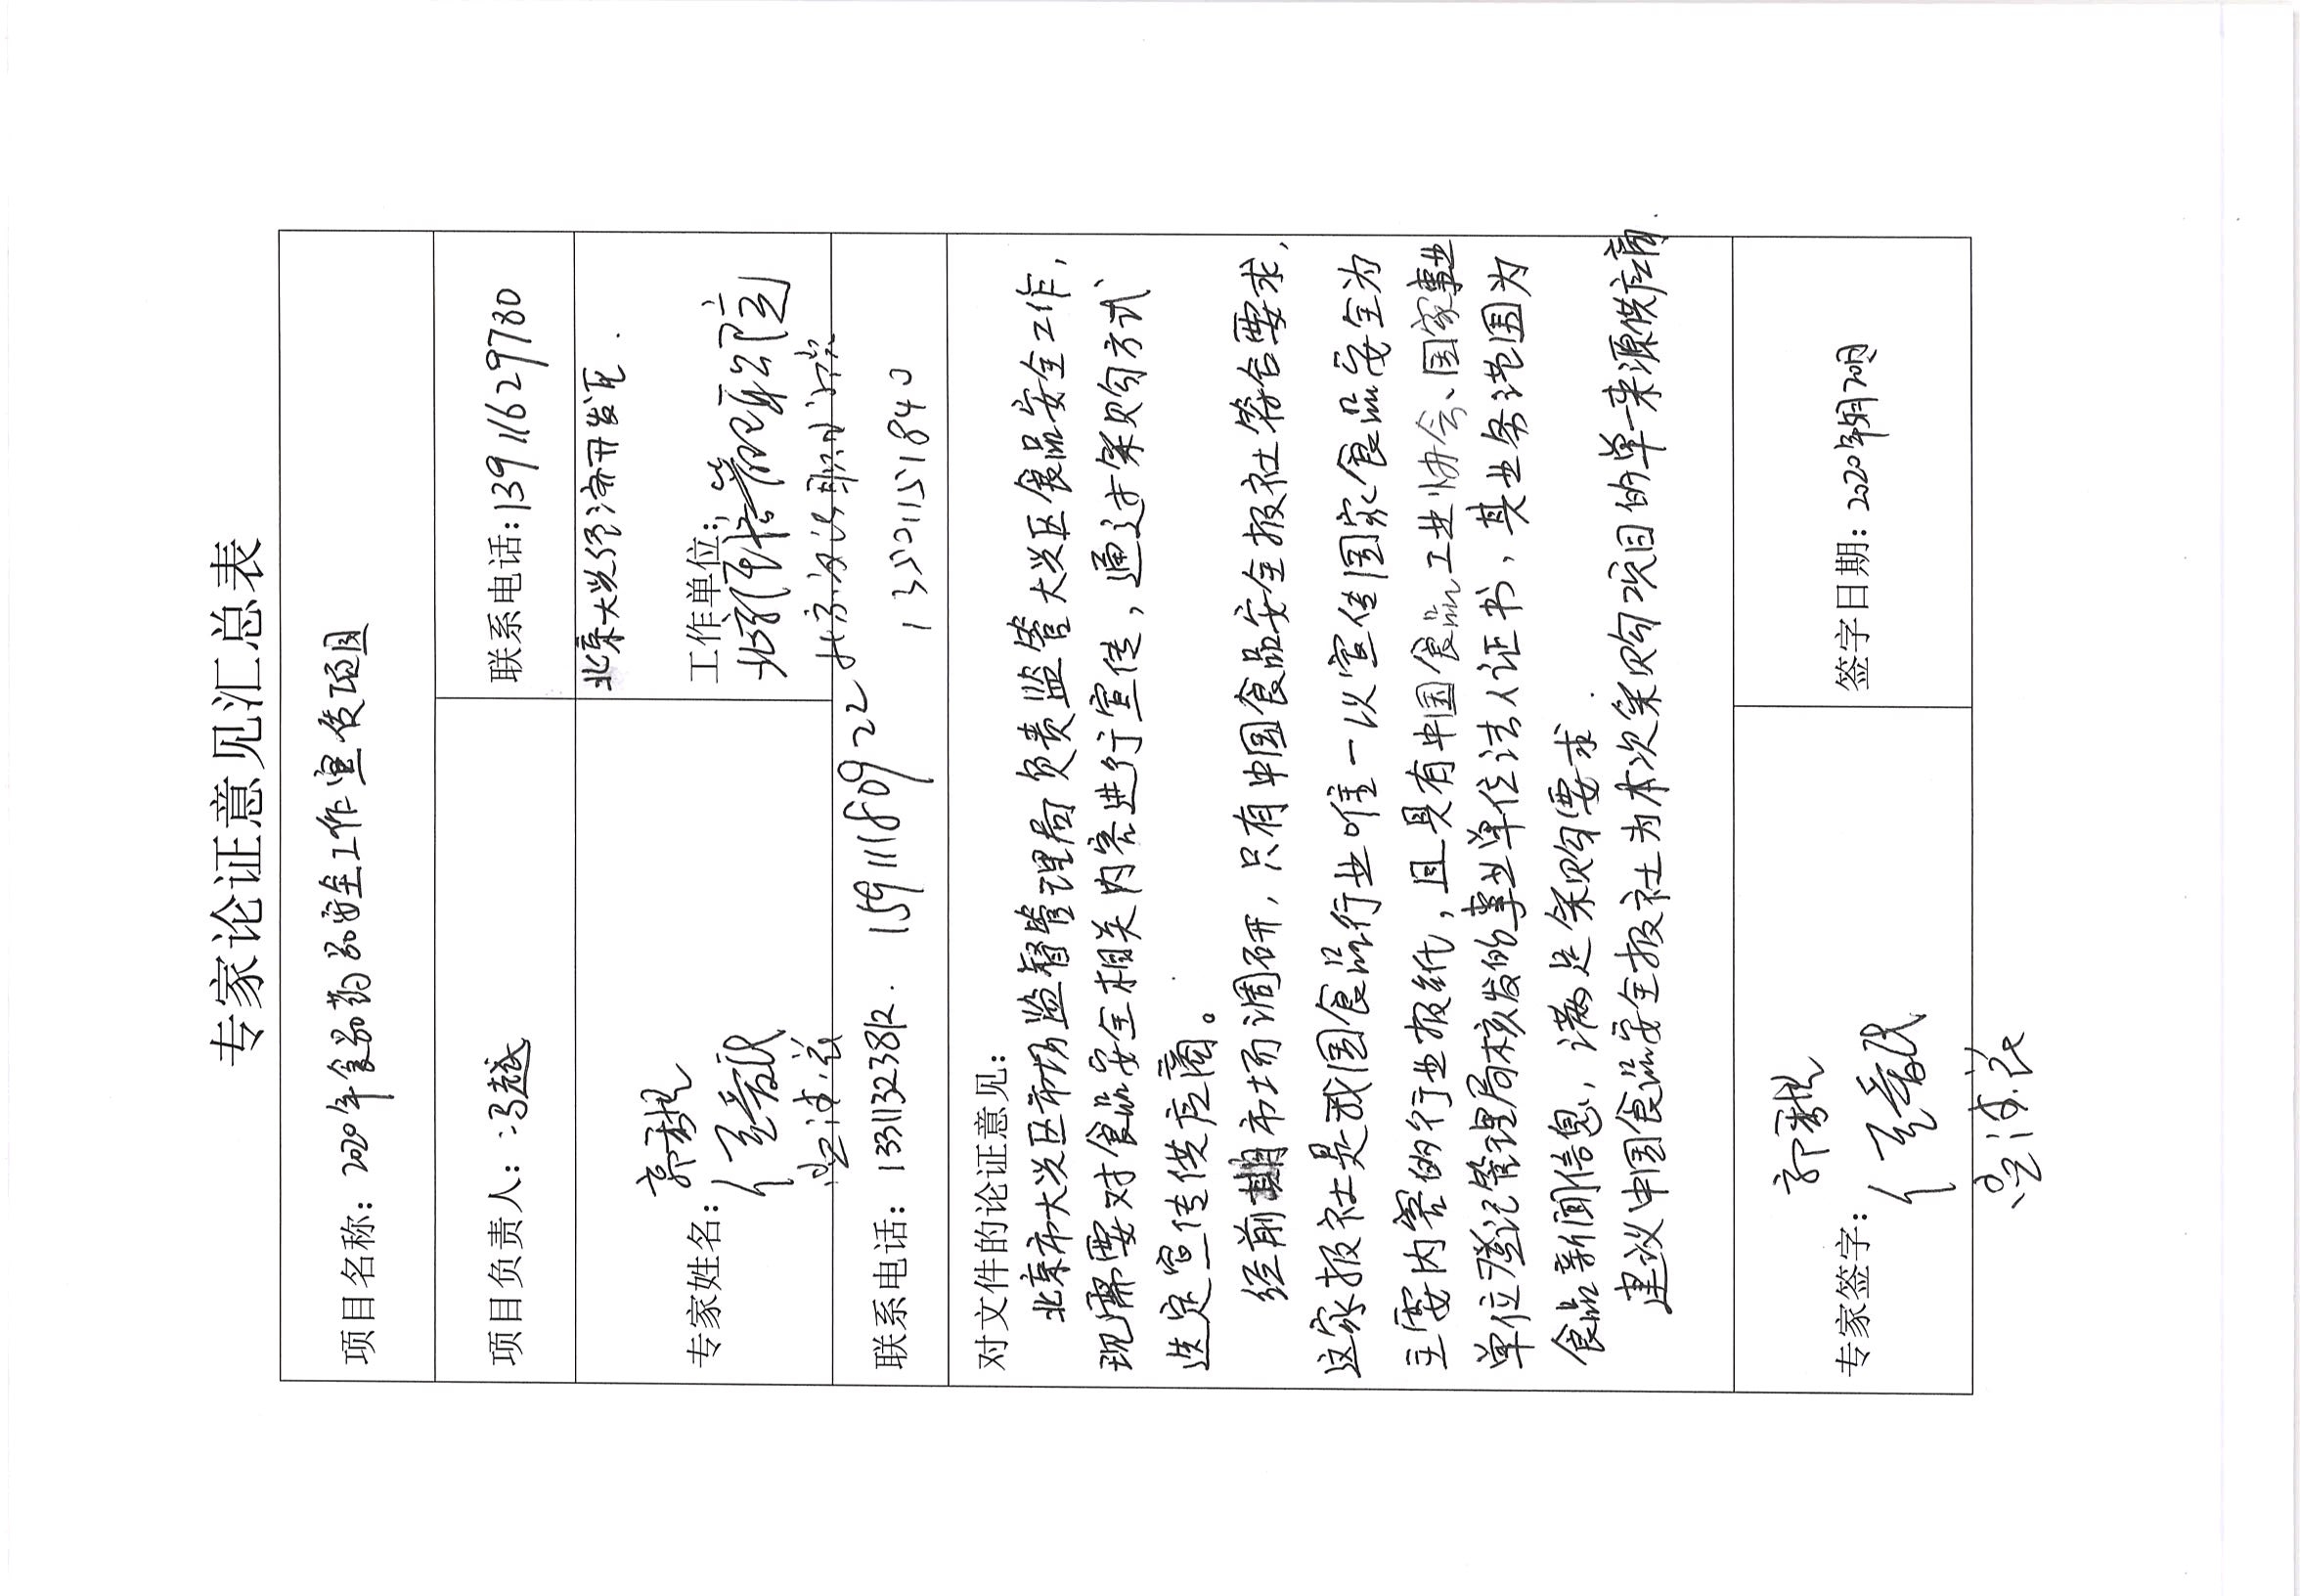 专家论证意见汇总表
项目名称：2020年食品药品安全工作宣传项目
项目负责人：冯越
联系电话：13911629780
北京大兴经济开发区
专家姓名：郭
工作单位：
联系电话：13311323812. 15911180922 13501151840
对文件的论证意见：
北京市大兴区市场监督管理局负责监管大兴区食品安全工作，
现需要对食品安全相关内容进行宣传，通过采购方式
选定宣传供应商。
经前期市场调研，只有中国食品安全报社符合要求，
这家报社是我国食品行业唯一以宣传国家食品安全为
主要内容的行业报纸，且具有中国食品工业协会、国家事业
单位登记管理局核发的事业单位法人证书，其业务范围为
食品新闻信息，满足采购要求.
建议中国食品安全报社为本次采购项目的单一来源供应商.
专家签字：郭
签字日期：2020年5月20日